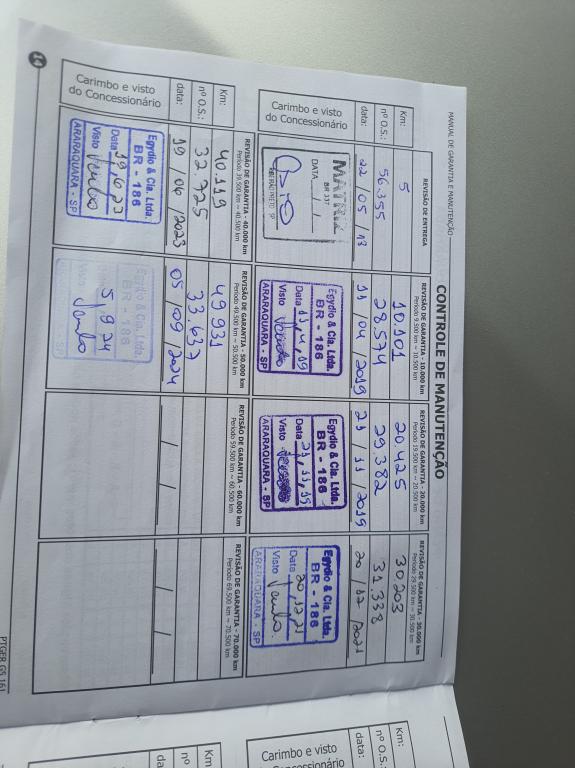 MANUAL DE GARANTIA E MANUTENÇÃO
CONTROLE DE MANUTENÇÃO
REVISÃO DE ENTREGA
Km: 5
nº O.S.: 56.355
data: 22 / 05 / 13
Carimbo e visto
do Concessionário
MATRIZ
BR 137
DATA
RIBEIRÃO PRETO SP
REVISÃO DE GARANTIA - 10.000 km
Período 9.500 km ~ 10.500 km
10.101
28.574
11 / 04 / 2019
Egydio & Cia. Ltda.
BR - 186
Data 11, 4, 19
Visto
ARARAQUARA - SP
REVISÃO DE GARANTIA - 20.000 km
Período 19.500 km ~ 20.500 km
20.425
29.382
21 / 11 / 2019
Egydio & Cia. Ltda.
BR - 186
Data 21, 11, 19
Visto
ARARAQUARA - SP
REVISÃO DE GARANTIA - 30.000 km
Período 29.500 km ~ 30.500 km
30.203
31.338
20 / 12 / 2021
Egydio & Cia. Ltda.
BR - 186
Data 20, 12, 21
Visto
ARARAQUARA - SP
REVISÃO DE GARANTIA - 40.000 km
Período 39.500 km ~ 40.500 km
Km: 40.119
nº O.S.: 32.925
data: 19 / 06 / 2023
Carimbo e visto
do Concessionário
Egydio & Cia. Ltda.
BR - 186
Data 19, 6, 23
Visto
ARARAQUARA - SP
REVISÃO DE GARANTIA - 50.000 km
Período 49.500 km ~ 50.500 km
49.931
33.637
05 / 09 / 2024
Egydio & Cia. Ltda.
BR - 186
5, 9, 24
REVISÃO DE GARANTIA - 60.000 km
Período 59.500 km ~ 60.500 km
/ /
REVISÃO DE GARANTIA - 70.000 km
Período 69.500 km ~ 70.500 km
/ /
Km:
nº O.S.:
data:
Carimbo e visto
Concessionário
Km
nº
da